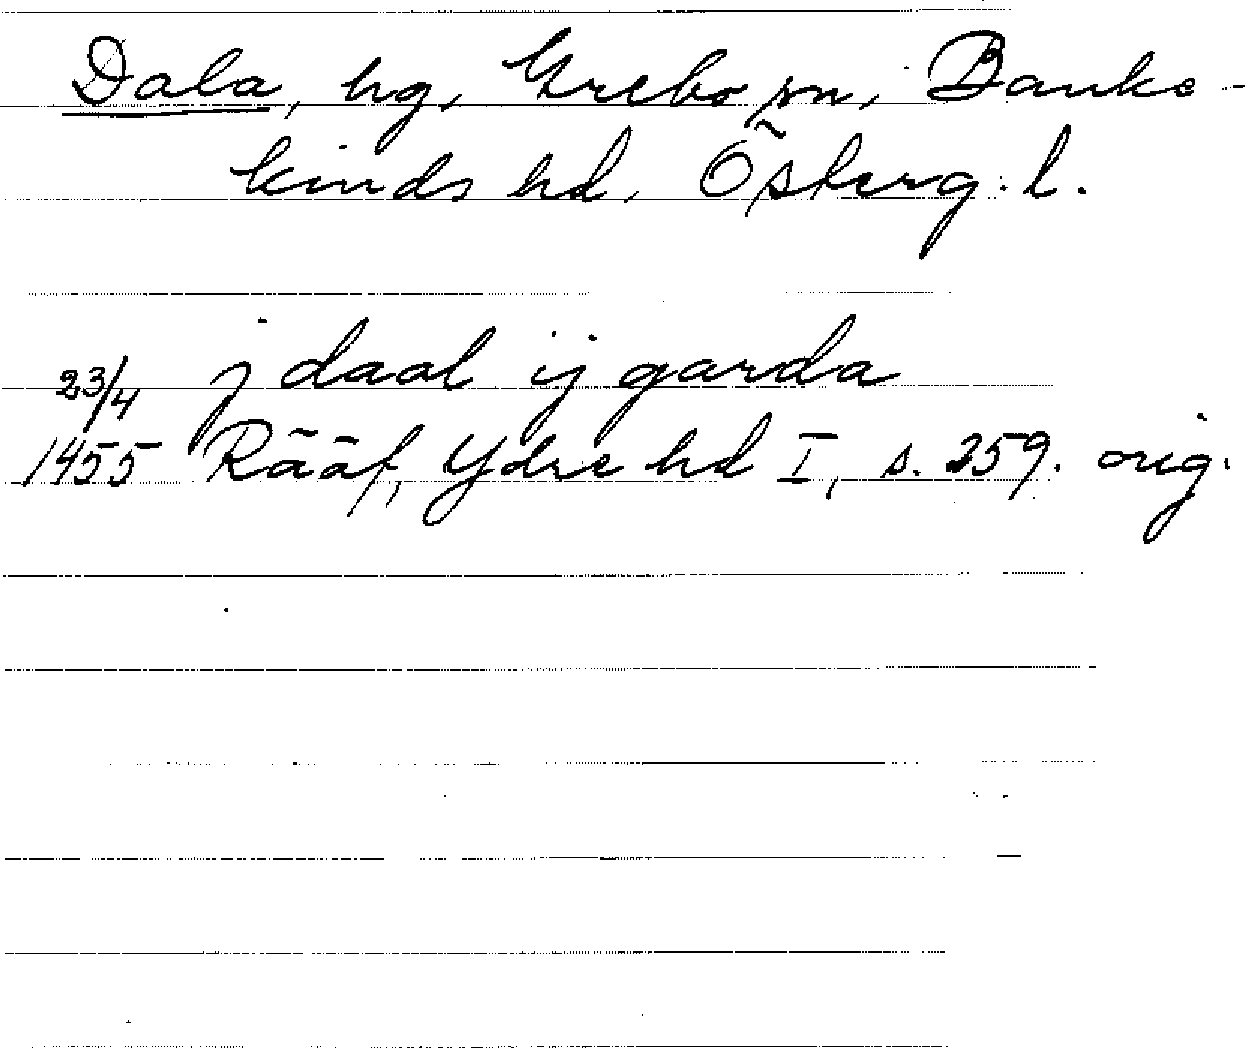 Dala, hg, Grebo sn, Banke-
kinds hd, Österg. l.
j daal ij garda
23/4
1455 Rääf, Ydre hd I, s. 259. orig.